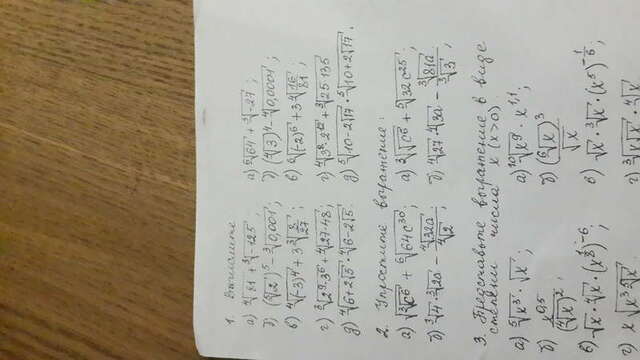 1. Вычислите
а) ⁴√81 + ³√-125; а) ⁶√64 + ³√-27;
б) (⁵√2)⁵ - ³√0,001; б) (⁴√3)⁴ - ⁴√0,0001;
в) ⁴√(-3)⁴ + 3 ³√(8/27); в) ⁶√(-2)⁶ + 3 ⁴√(16/81)
г) ³√(2⁹·3⁶) + ⁴√(27·48); г) ⁴√(3⁸·2¹²) + ³√(25·135)
д) ⁴√(6+2√5) · ⁴√(6-2√5). д) ⁵√(10-2√17) · ⁵√(10+2√17).
2. Упростите выражение:
а) ³√c⁶ + ⁶√(64c³⁰) а) ³√√c⁶ + ⁵√(32c²⁵);
б) ³√4 · ³√2a - ⁴√32a / ⁴√2; б) ⁴√27 · ⁴√3a - ³√81a / ³√3;
3. Представьте выражение в виде
степени числа x (x>0)
а) ⁵√x³ · √x; а) ¹⁰√x⁹ · x¹,¹;
б) x⁰,⁵ / (⁴√x)²; б) (⁶√x)³ / √x
в) √x · ⁴√x · (x^(1/8))⁻⁶ в) √x · ³√x · (x⁵)^(-1/6)
г) x √(x³ г) ³√(x · ⁴√x